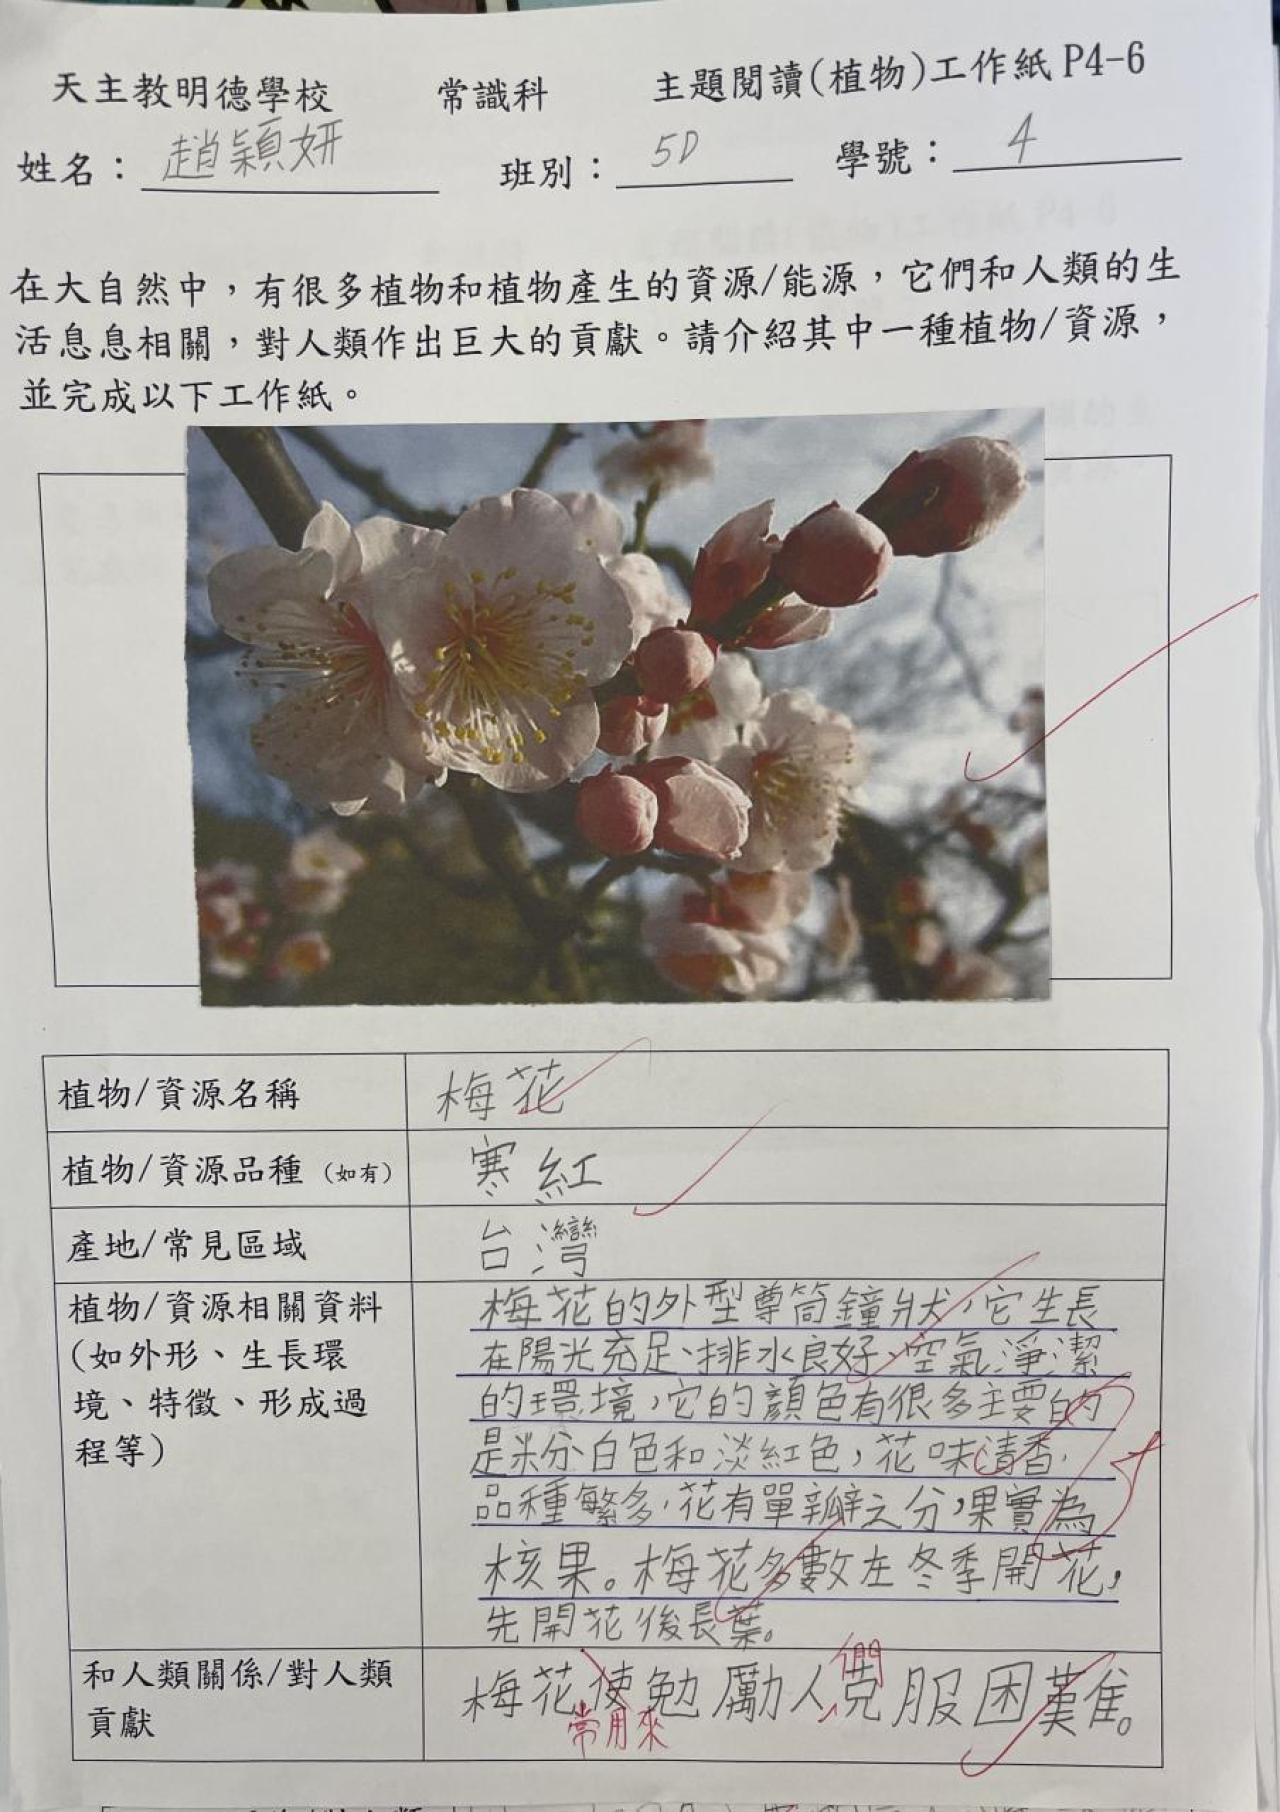 天主教明德學校 常識科 主題閱讀(植物)工作紙 P4-6
姓名：趙穎妍 班別：5D 學號：4
在大自然中，有很多植物和植物產生的資源/能源，它們和人類的生
活息息相關，對人類作出巨大的貢獻。請介紹其中一種植物/資源，
並完成以下工作紙。
植物/資源名稱 梅花
植物/資源品種（如有） 寒紅
產地/常見區域 台灣
植物/資源相關資料
(如外形、生長環
境、特徵、形成過
程等)
梅花的外型尊筒鐘狀，它生長
在陽光充足、排水良好、空氣淨潔
的環境，它的顏色有很多主要的
是粉白色和淡紅色，花味清香，
品種繁多，花有單瓣之分，果實為
核果。梅花多數在冬季開花，
先開花後長葉。
和人類關係/對人類
貢獻
梅花使勉勵人克服困難。
常用來
們